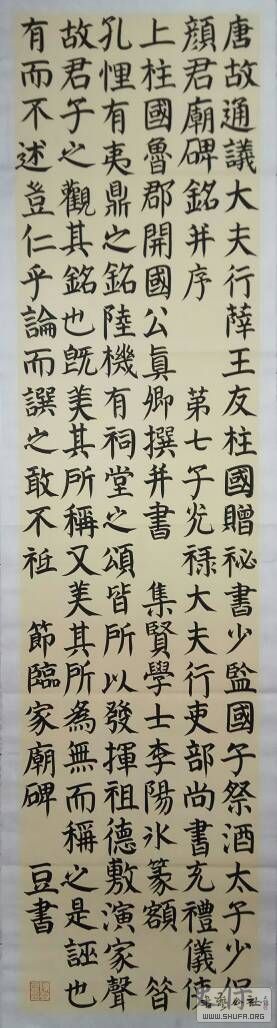 唐故通議大夫行薩王友柱國贈祕書少監國子祭酒太子少保
顏君廟碑銘并序 第七子光祿大夫行吏部尚書充禮儀使
上柱國魯郡開國公眞卿撰并書 集賢學士李陽氷篆額 昝
孔悝有夷鼎之銘陸機有祠堂之頌皆所以發揮祖德敷演家聲
故君子之觀其銘也旣美其所稱又美其所爲無而稱之是誣也
有而不述豈仁乎論而譔之敢不祗 節臨家廟碑 豆書
WWW.SHUFA.ORG